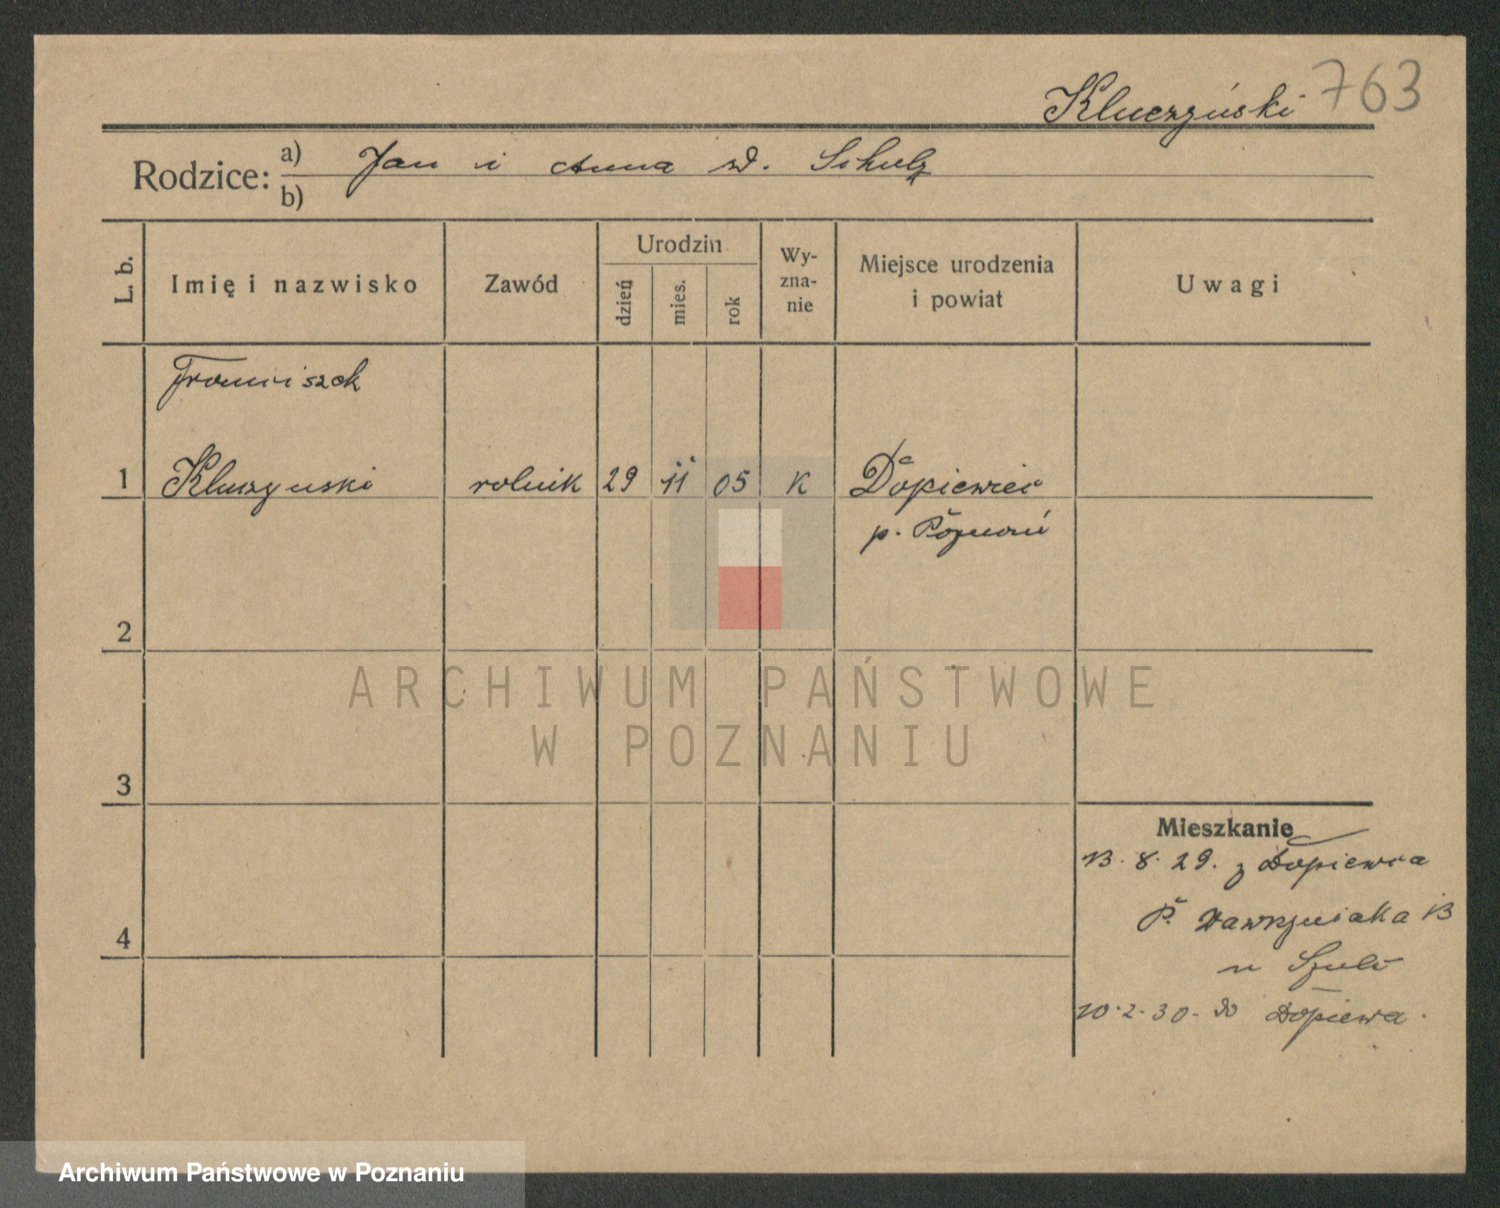 Kluczyński 763
Rodzice: a) Jan i Anna d. Schulz
b)
L. b. Imię i nazwisko Zawód Urodzin dzień mies. rok Wy-zna-nie Miejsce urodzenia i powiat Uwagi
Franciszek
1 Kluczyński rolnik 29 11 05 K Dopiewiec
p. Poznań
2
ARCHIWUM PAŃSTWOWE
W POZNANIU
3
Mieszkanie
13.8.29. z Dopiewca
4
u Szulc
10.2.30. do Dopiewa.
Archiwum Państwowe w Poznaniu